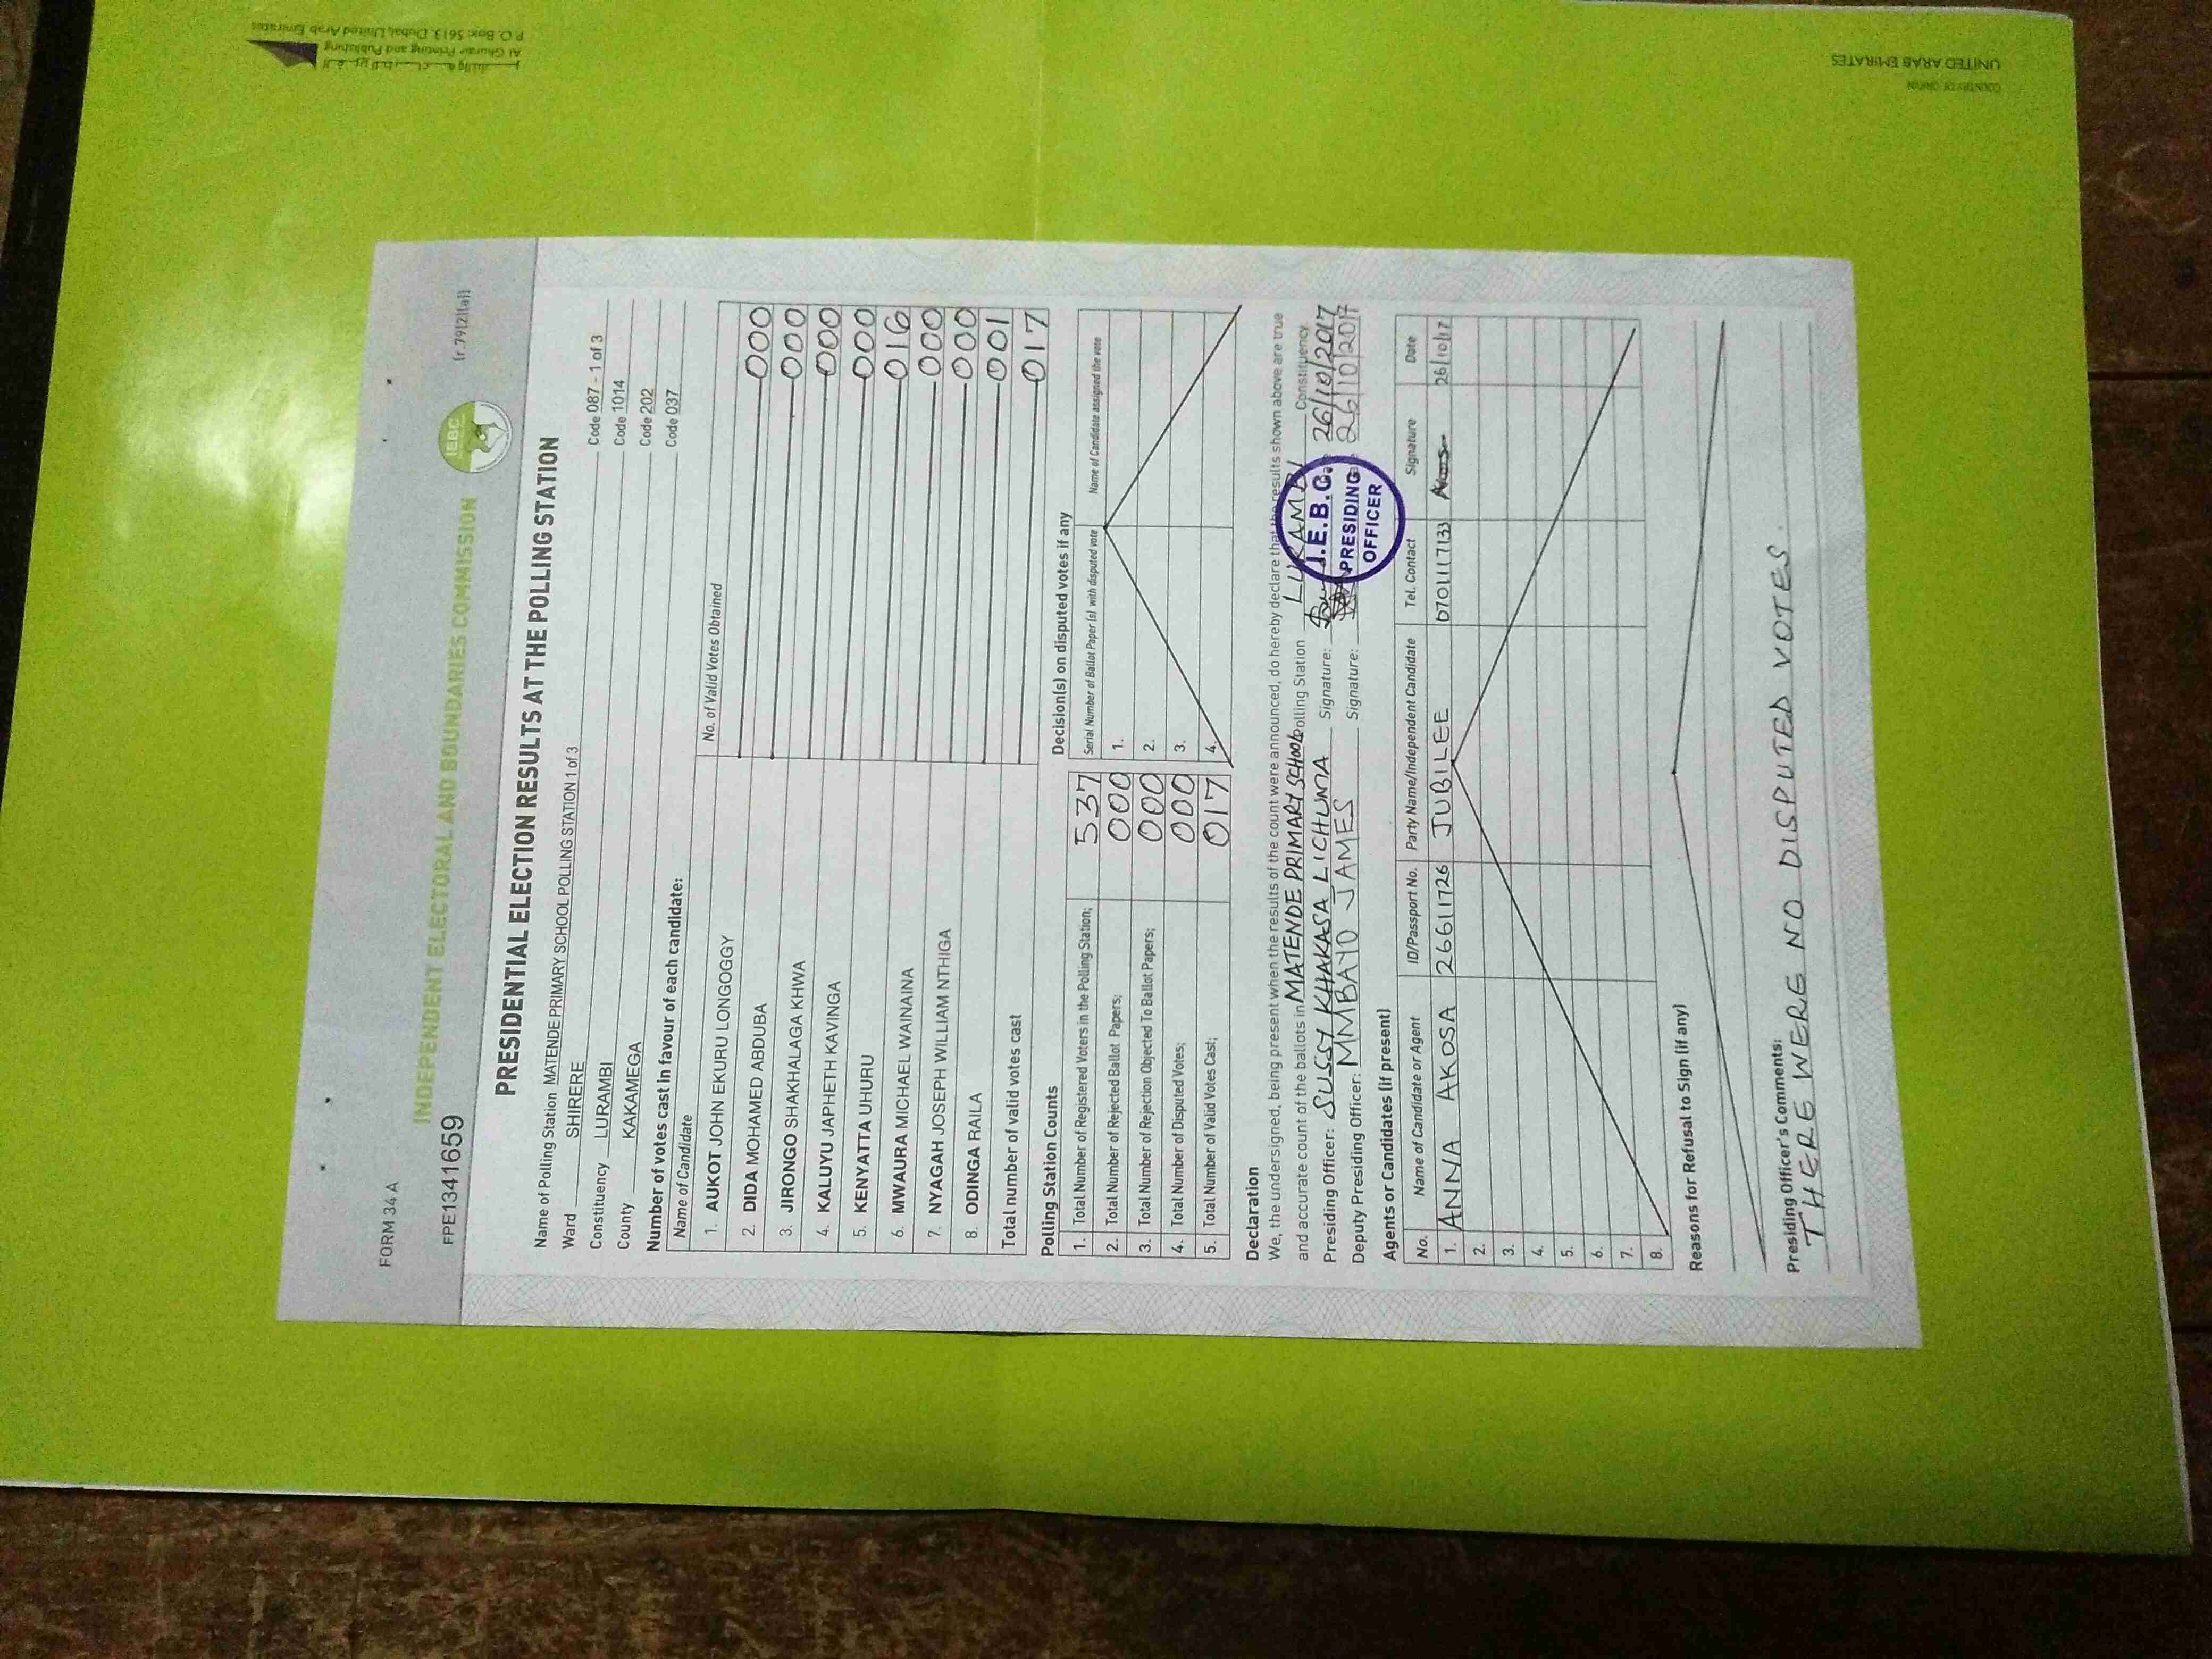 FORM 34 A
(r.79(2)(a))
INDEPENDENT ELECTORAL AND BOUNDARIES COMMISSION
IEBC
FPE1341659
PRESIDENTIAL ELECTION RESULTS AT THE POLLING STATION
Name of Polling Station MATENDE PRIMARY SCHOOL POLLING STATION 1 of 3 Code 087 - 1 of 3
Ward SHIRERE Code 1014
Constituency LURAMBI Code 202
County KAKAMEGA Code 037
Number of votes cast in favour of each candidate:
Name of Candidate No. of Valid Votes Obtained
1. AUKOT JOHN EKURU LONGOGGY 000
2. DIDA MOHAMED ABDUBA 000
3. JIRONGO SHAKHALAGA KHWA 000
4. KALUYU JAPHETH KAVINGA 000
5. KENYATTA UHURU 016
6. MWAURA MICHAEL WAINAINA 000
7. NYAGAH JOSEPH WILLIAM NTHIGA 000
8. ODINGA RAILA 001
Total number of valid votes cast 017
Polling Station Counts
1. Total Number of Registered Voters in the Polling Station; 537
2. Total Number of Rejected Ballot Papers; 000
3. Total Number of Rejection Objected To Ballot Papers; 000
4. Total Number of Disputed Votes; 000
5. Total Number of Valid Votes Cast; 017
Decision(s) on disputed votes if any
Serial Number of Ballot Paper (s) with disputed vote Name of Candidate assigned the vote
1.
2.
3.
4.
Declaration
We, the undersigned, being present when the results of the count were announced, do hereby declare that the results shown above are true
and accurate count of the ballots in MATENDE PRIMARY SCHOOL Polling Station LURAMBI Constituency
Presiding Officer: SUSSY KHAKASA LICHUMA Signature: Date 26/10/2017
Deputy Presiding Officer: MMBAYO JAMES Signature: 26/10/2017
I.E.B.C.
PRESIDING
OFFICER
Agents or Candidates (if present)
No. Name of Candidate or Agent ID/Passport No. Party Name/Independent Candidate Tel. Contact Signature Date
1. ANNA AKOSA 26611726 JUBILEE 0701117133 26/10/17
2.
3.
4.
5.
6.
7.
8.
Reasons for Refusal to Sign (if any)
Presiding Officer's Comments:
THERE WERE NO DISPUTED VOTES.
Al Ghurair Printing and Publishing
P.O. Box: 5613, Dubai, United Arab Emirates
COUNTRY OF ORIGIN
UNITED ARAB EMIRATES